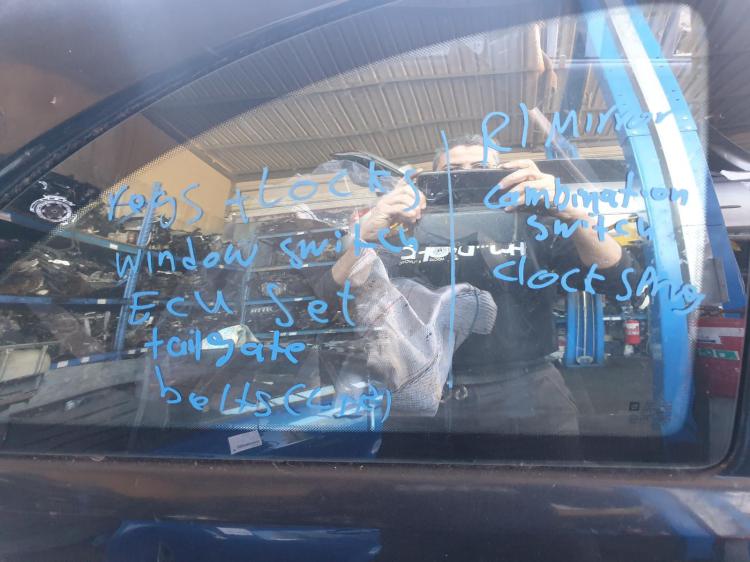 keys + Locks
window switch
ECU Set
tailgate
belts (L+R)
R) Mirror
Combination
Switch
Clock Spring